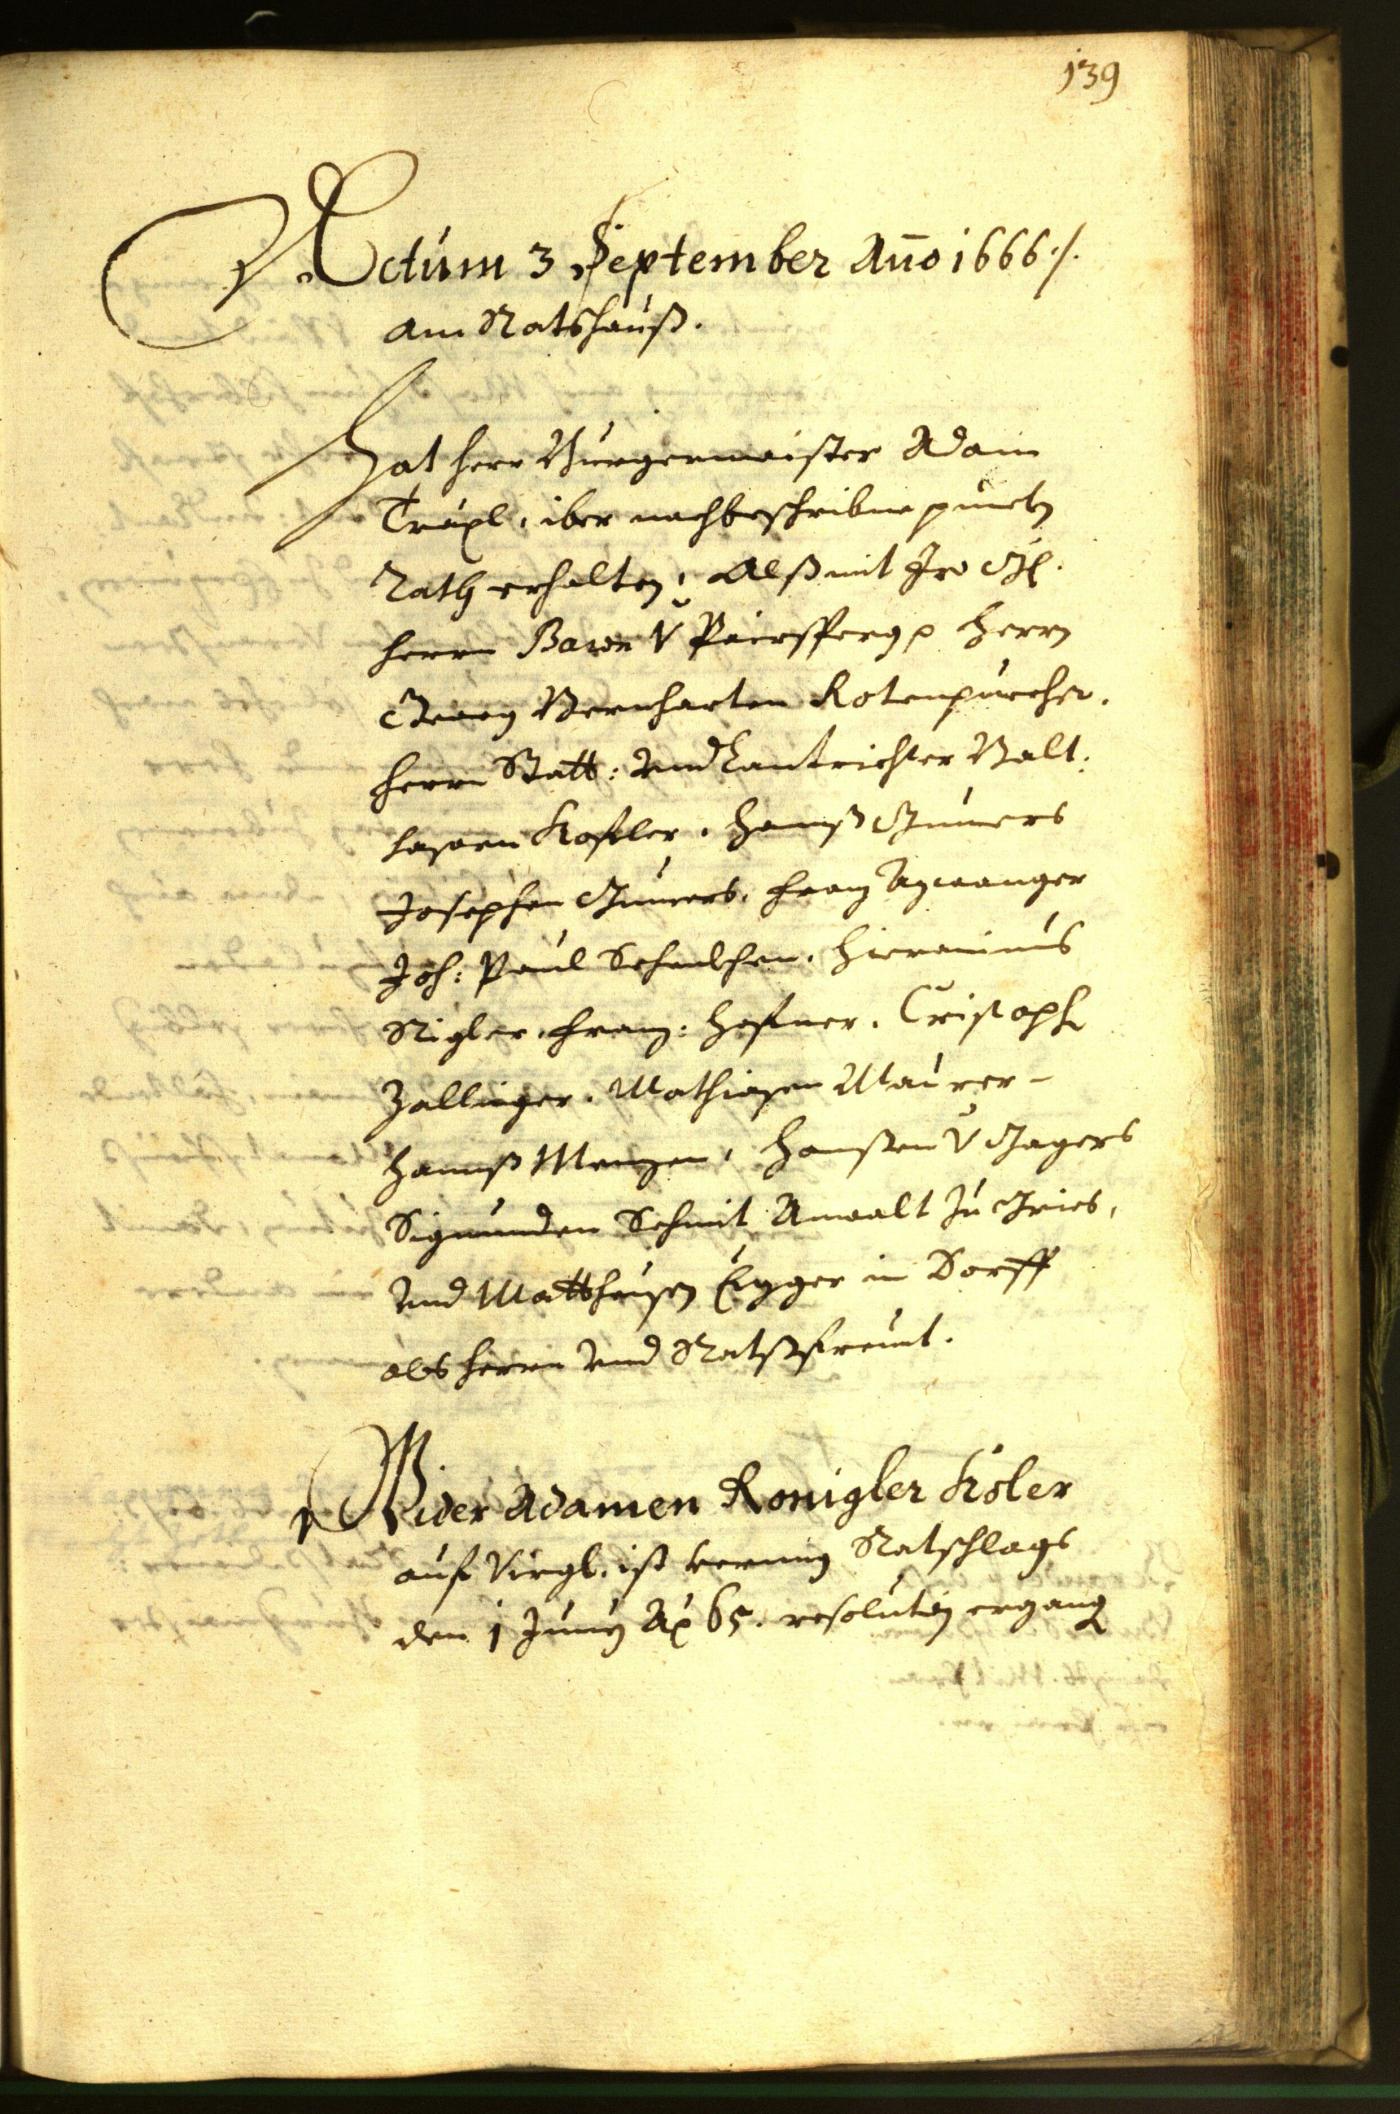 139
Actum 3 September Año 1666 ./.
am Ratshauß.
Hat herr Burgermaister Adam
Träxl, iber nachbeschribne puncten
Rath erhalten, Alß mit Iro
herrn Baron v Paierssperg p herrn
Georg Bernharten Rotenpuecher.
herrn Statt: vnd Lantrichter Balt:
hasarn Kofler. Hannß Gumers
Josephen Gumers. Franz Azwanger
Joh: Paul Schalchen. Hieronimus
Rigler. Franz: Hofner. Cristoph
Zallinger. Mathiasen Maurer-
Hannß Menzen, Hanßen v Jagers
Sigmunden Schmit Anwalt zu Gries,
vnd Matthäusen Egger in Dorff
als herrn vnd Ratßfreunt.
Wider Adamen Konigler Köler
auf Virgl. ist vermig Ratschlags
den 1 Junij Aõ 65. resolution ergang